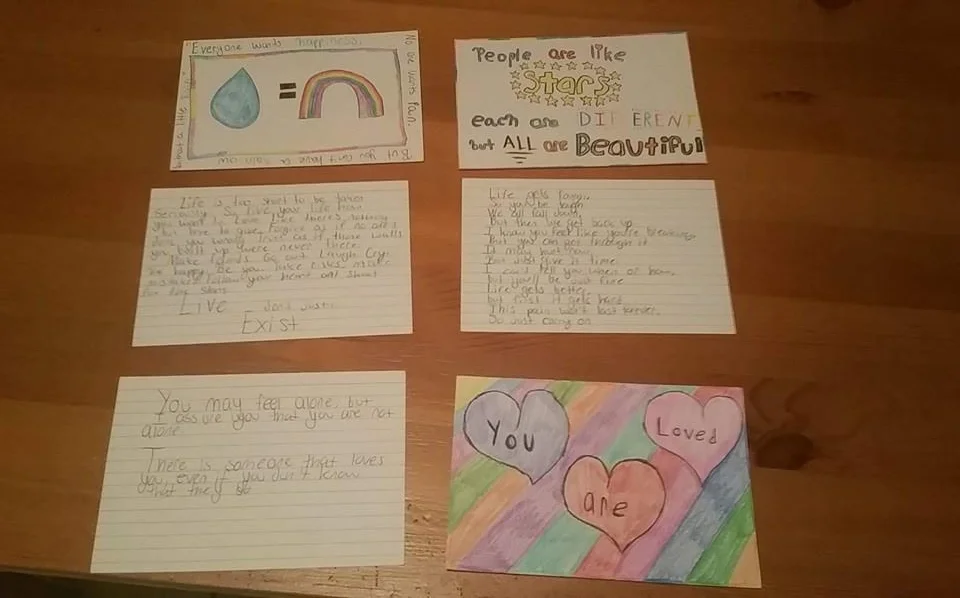 "Everyone wants happiness.
No one wants Pain.
But you can't have a rain bow
without a little
=
People are like
Stars
each are DIFFERENT
but ALL are Beautiful
Life is too short to be taken
Seriously. So live your life how
you want to. Love like there's nothing
to give, Forgive as if no one's
done you wrong
you built up were never there.
Make friends Go out Laugh Cry.
Be happy. Be you. Take risks, make
mistakes Follow your heart and Shoot
for the Stars
Live don't Just
Exist
Life gets
We all fall down,
But then we get back up
I know you feel like you're
But you can get through it
It may hurt now,
But Just give it time.
I can't tell you when or how,
but you'll be Just fine
Life gets better
but first it gets hard
This pain won't last forever,
So Just carry on
You may feel alone, but
I assure you that you are not
alone.
There is someone that loves
you, even if you don't know
that they do
You are Loved